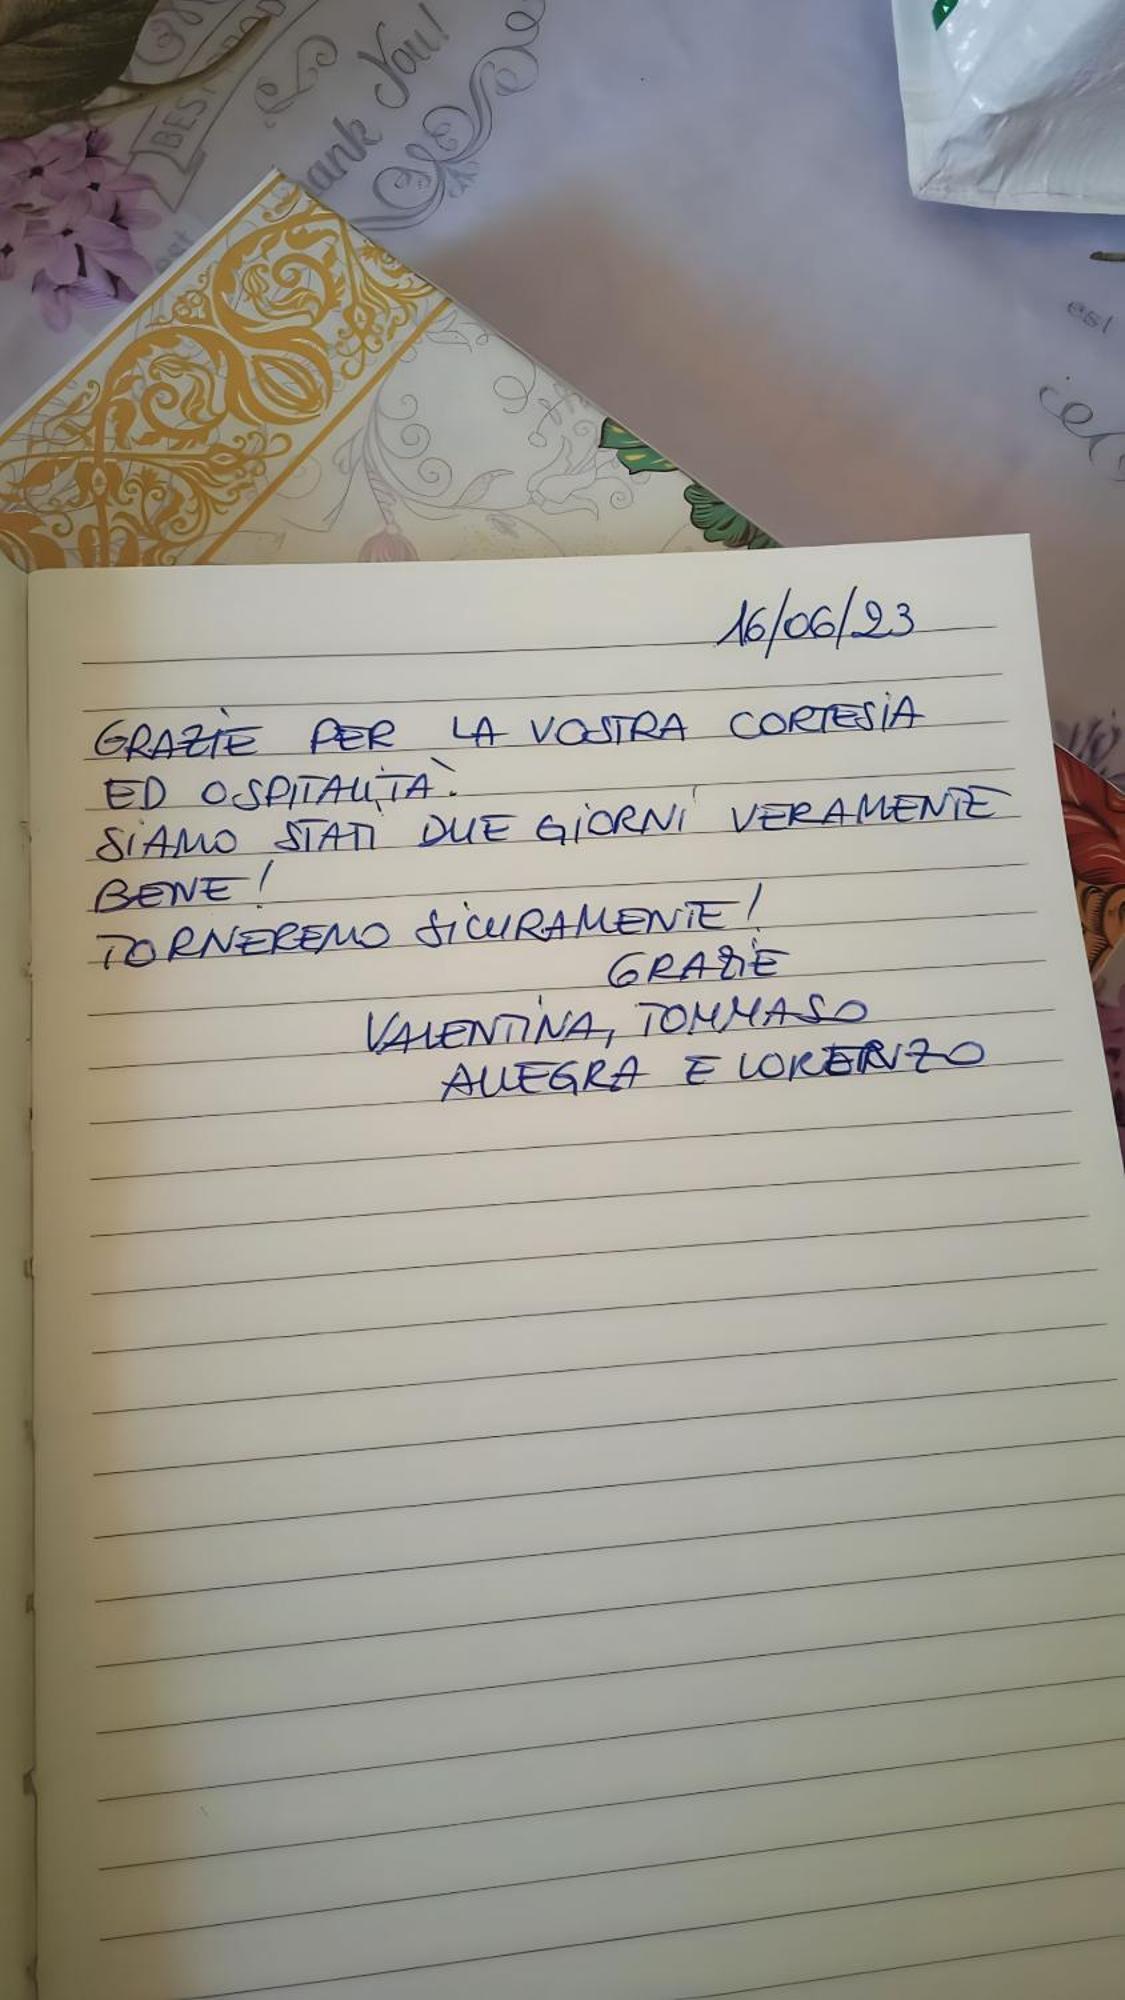 BEST
Thank You!
est
est
16/06/23
GRAZIE PER LA VOSTRA CORTESIA
ED OSPITALITÀ.
SIAMO STATI DUE GIORNI VERAMENTE
BENE!
TORNEREMO SICURAMENTE!
GRAZIE
VALENTINA, TOMMASO
ALLEGRA E LORENZO